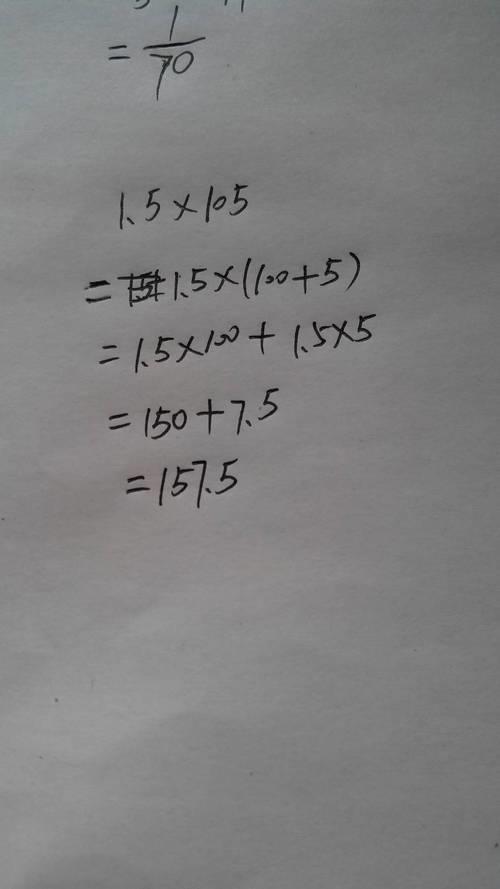 = 1/70
1.5×105
= 1.5×(100+5)
= 1.5×100+1.5×5
= 150+7.5
= 157.5